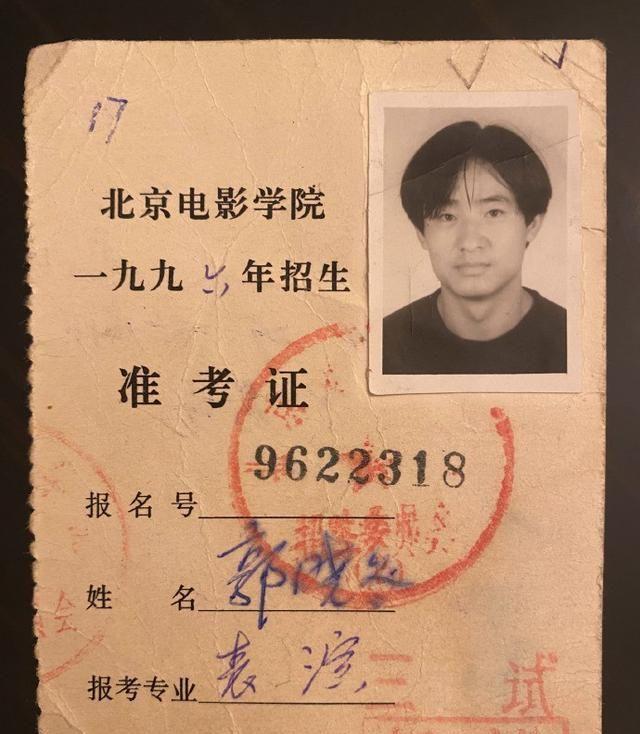 17
北京电影学院
一九九六年招生
准考证
9622318
报名号
姓名 郭晓冬
报考专业 表演
三试